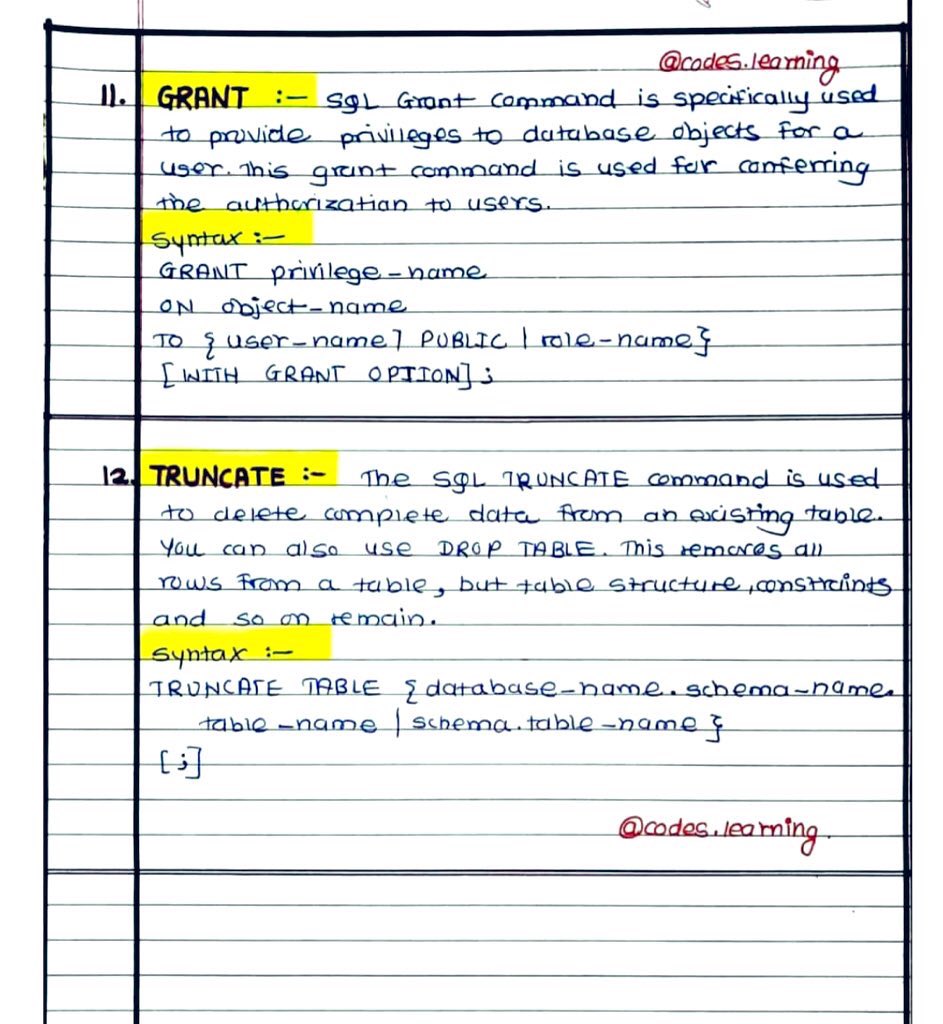 @codes.learning
11. GRANT :- SQL Grant command is specifically used
to provide privileges to database objects for a
user. This grant command is used for conferring
the authorization to users.
Syntax :-
GRANT privilege-name
ON object-name
TO {user-name] PUBLIC | role-name}
[WITH GRANT OPTION];
12. TRUNCATE :- The SQL TRUNCATE command is used
to delete complete data from an existing table.
You can also use DROP TABLE. This removes all
rows from a table, but table structure, constraints
and so on remain.
Syntax :-
TRUNCATE TABLE {database-name.schema-name.
table-name | schema.table-name}
[;]
@codes.learning.